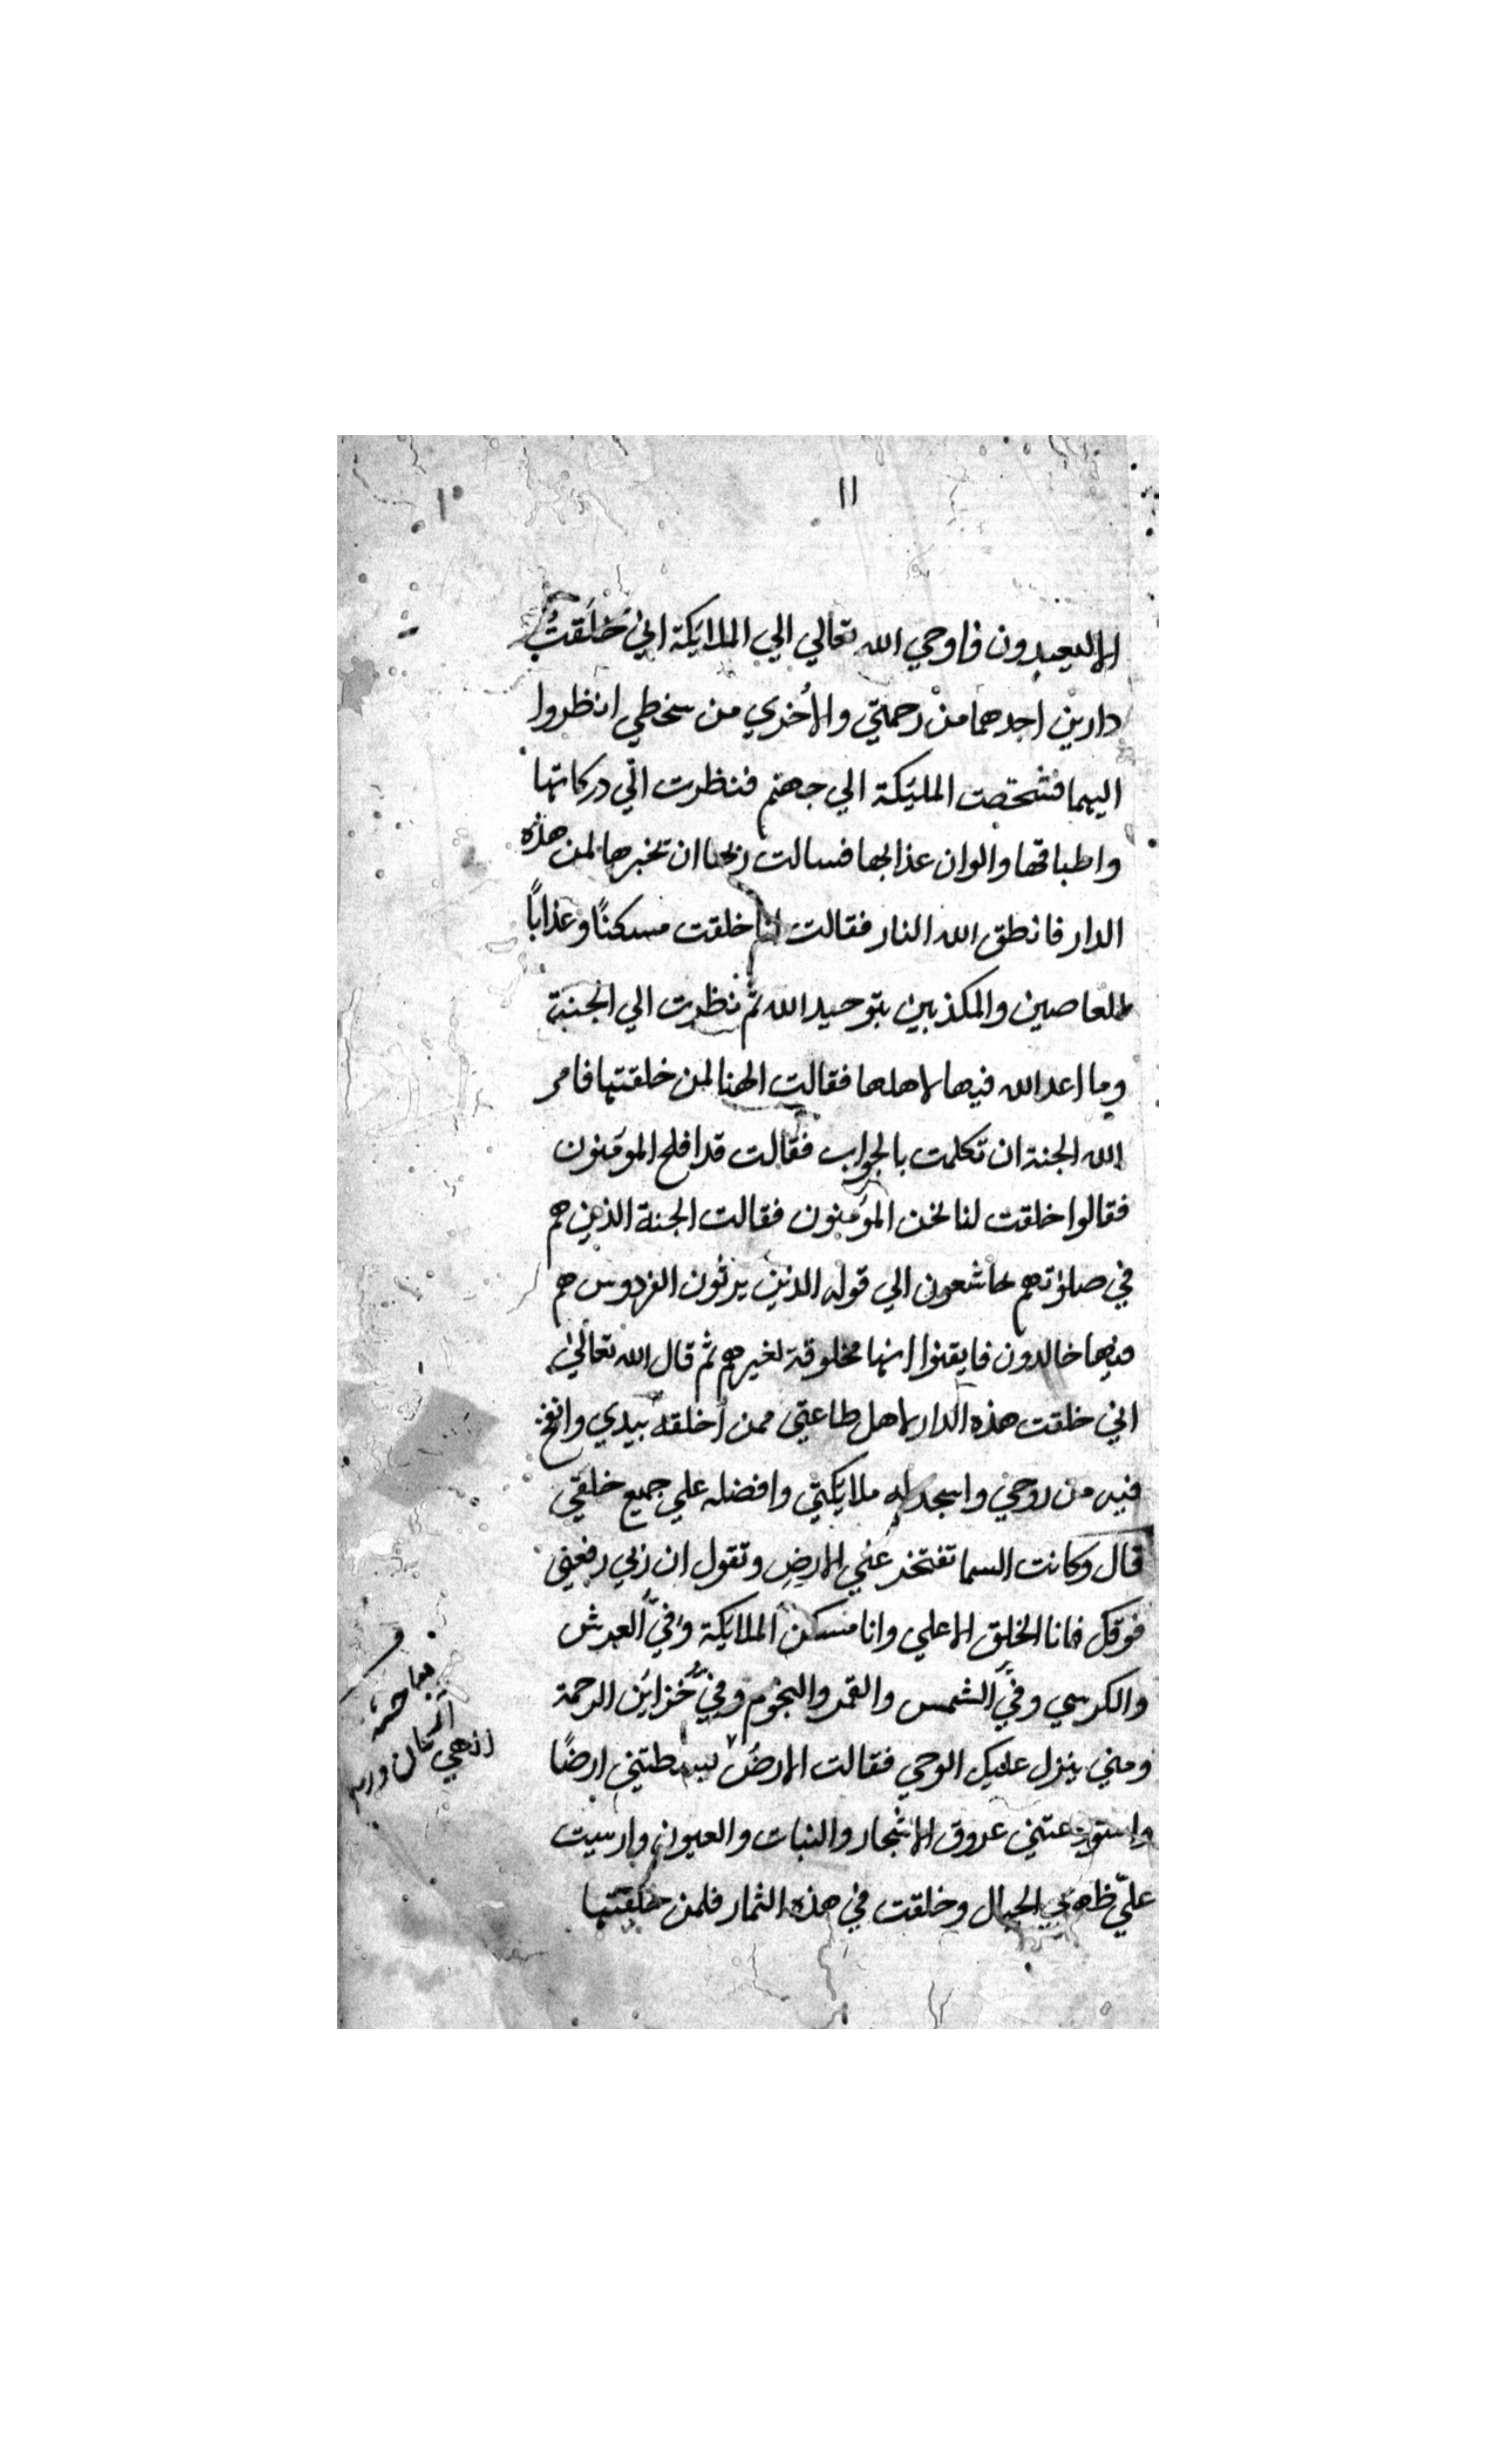 ١١
١٠
الا ليعبدون فاوحي الله تعالي الي الملايكة اني خَلَقتُ
دارين احدهما من رحمتي والأخري من سخطي انظروا
اليهما فشخصت المليكة الي جهنم فنظرت الي دركاتها
واطباقها والوان عذابها فسالت ربها ان تخبرها لمن هذه
الدار فانطق الله النار فقالت خلقت مسكنًا وعذابًا
للعاصين والمكذبين بتوحيد الله ثم نظرت الي الجنة
وما اعد الله فيها لاهلها فقالت الهنا لمن خلقتها فامر
الله الجنة ان تكلمت بالجواب فقالت قد افلح المومنون
فقالوا خلقت لنا نحن المؤمنون فقالت الجنة الذين هم
في صلوتهم خاشعون الي قوله الذين يرثون الفردوس هم
فيها خالدون فايقنوا انها مخلوقة لغيرهم ثم قال الله تعالي
اني خلقت هذه الدار لاهل طاعتي ممن أخلقه بيدي وانفخ
فيه من روحي واسجد له ملايكتي وافضله علي جميع خلقي
قال وكانت السما تفتخر علي الارض وتقول ان ربي رفعني
فوقك فانا الخلق الاعلي وانا مسكن الملايكة وفيَّ العرش
والكرسي وفيَّ الشمس والقمر والنجوم وفيَّ خزاين الرحمة
ومني ينزل عليك الوحي فقالت الارضُ بسطتني ارضًا
واستودعتني عروق الاشجار والنبات والعيون وارسيت
عليّ ظهري الجبال وخلقت في هذه الثمار فلمن خلقتها